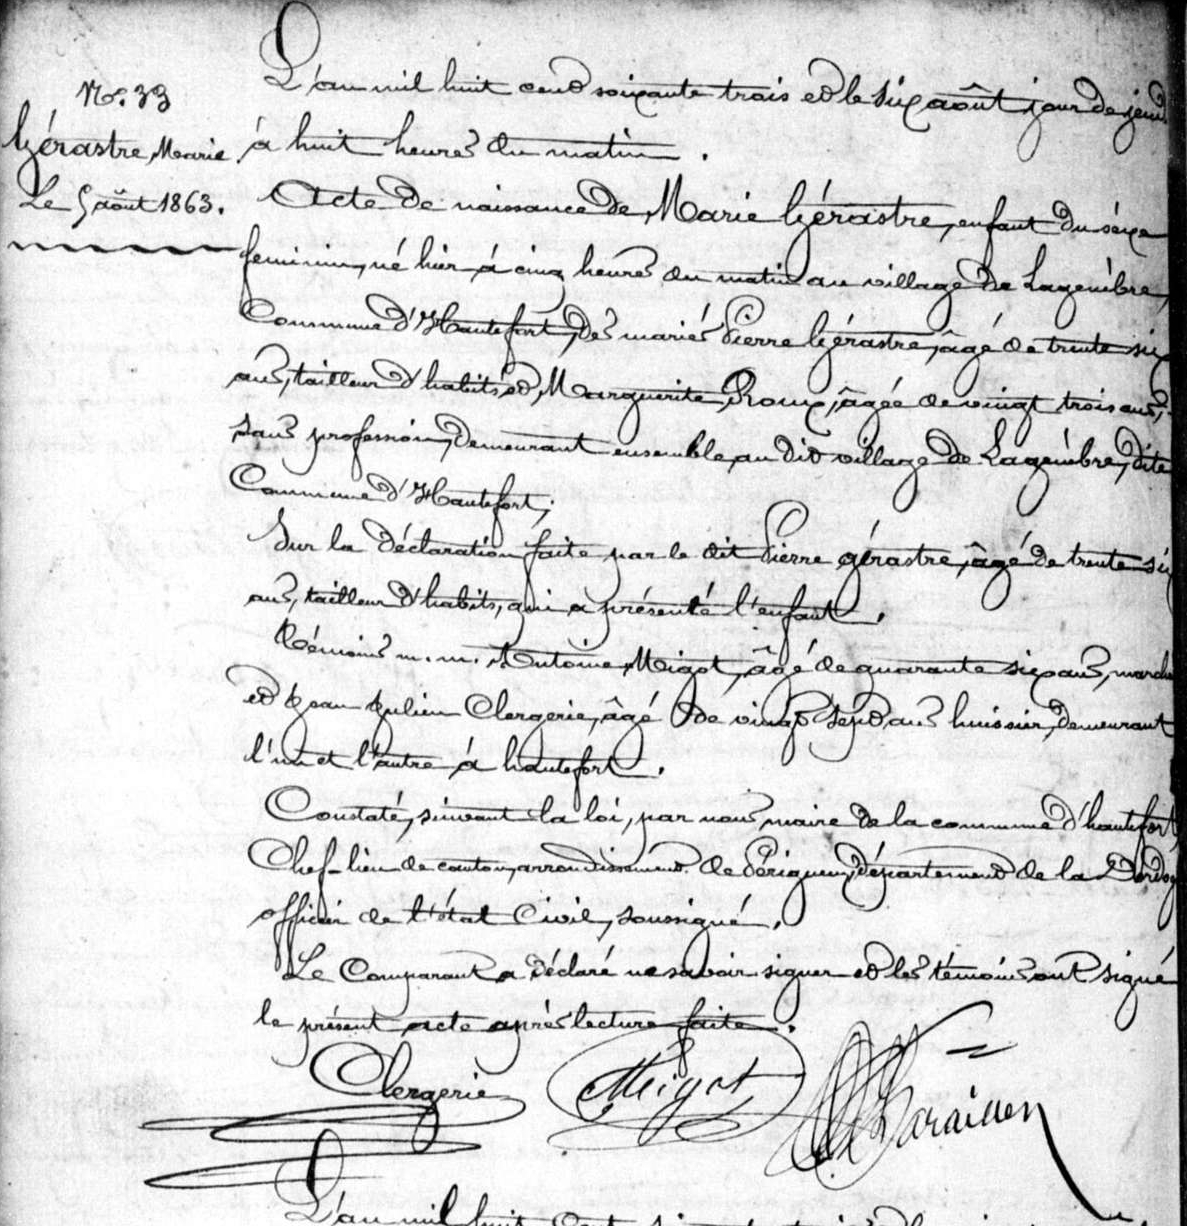 No. 33
Gérastre, Marie
Le 5 août 1863.
L'an mil huit cent soixante trois et le six août jour de jeudi
à huit heures du matin.
Acte de naissance de Marie Gérastre, enfant du séxe
feminin, né hier à cinq heures du matin au village de Lagenèbre,
Commune d'Hautefort, des mariés Pierre Gérastre, âgé de trente six
ans, tailleur d'habits et Marguerite Roux, âgée de vingt trois ans,
sans profession, demeurant ensemble au dit village de Lagenèbre, dite
Commune d'Hautefort;
Sur la déclaration faite par le dit Pierre gérastre, âgé de trente six
ans, tailleur d'habits, qui a présenté l'enfant.
Témoins m.m. Antoine Meigot, âgé de quarante six ans, march
et Jean Julien Clergerie, âgé de vingt sept ans huissier, demeurant
l'un et l'autre à hautefort.
Constaté, suivant la loi, par nous, maire de la commune d'hautefort,
Chef-lieu de canton, arrondissement de Périgueux, département de la Dordog
officier de l'état Civil, soussigné.
Le Comparant a déclaré ne savoir signer et les témoins ont signé
le présent acte après lecture faite.
Clergerie Meigot
L'an mil huit Cent soixante trois